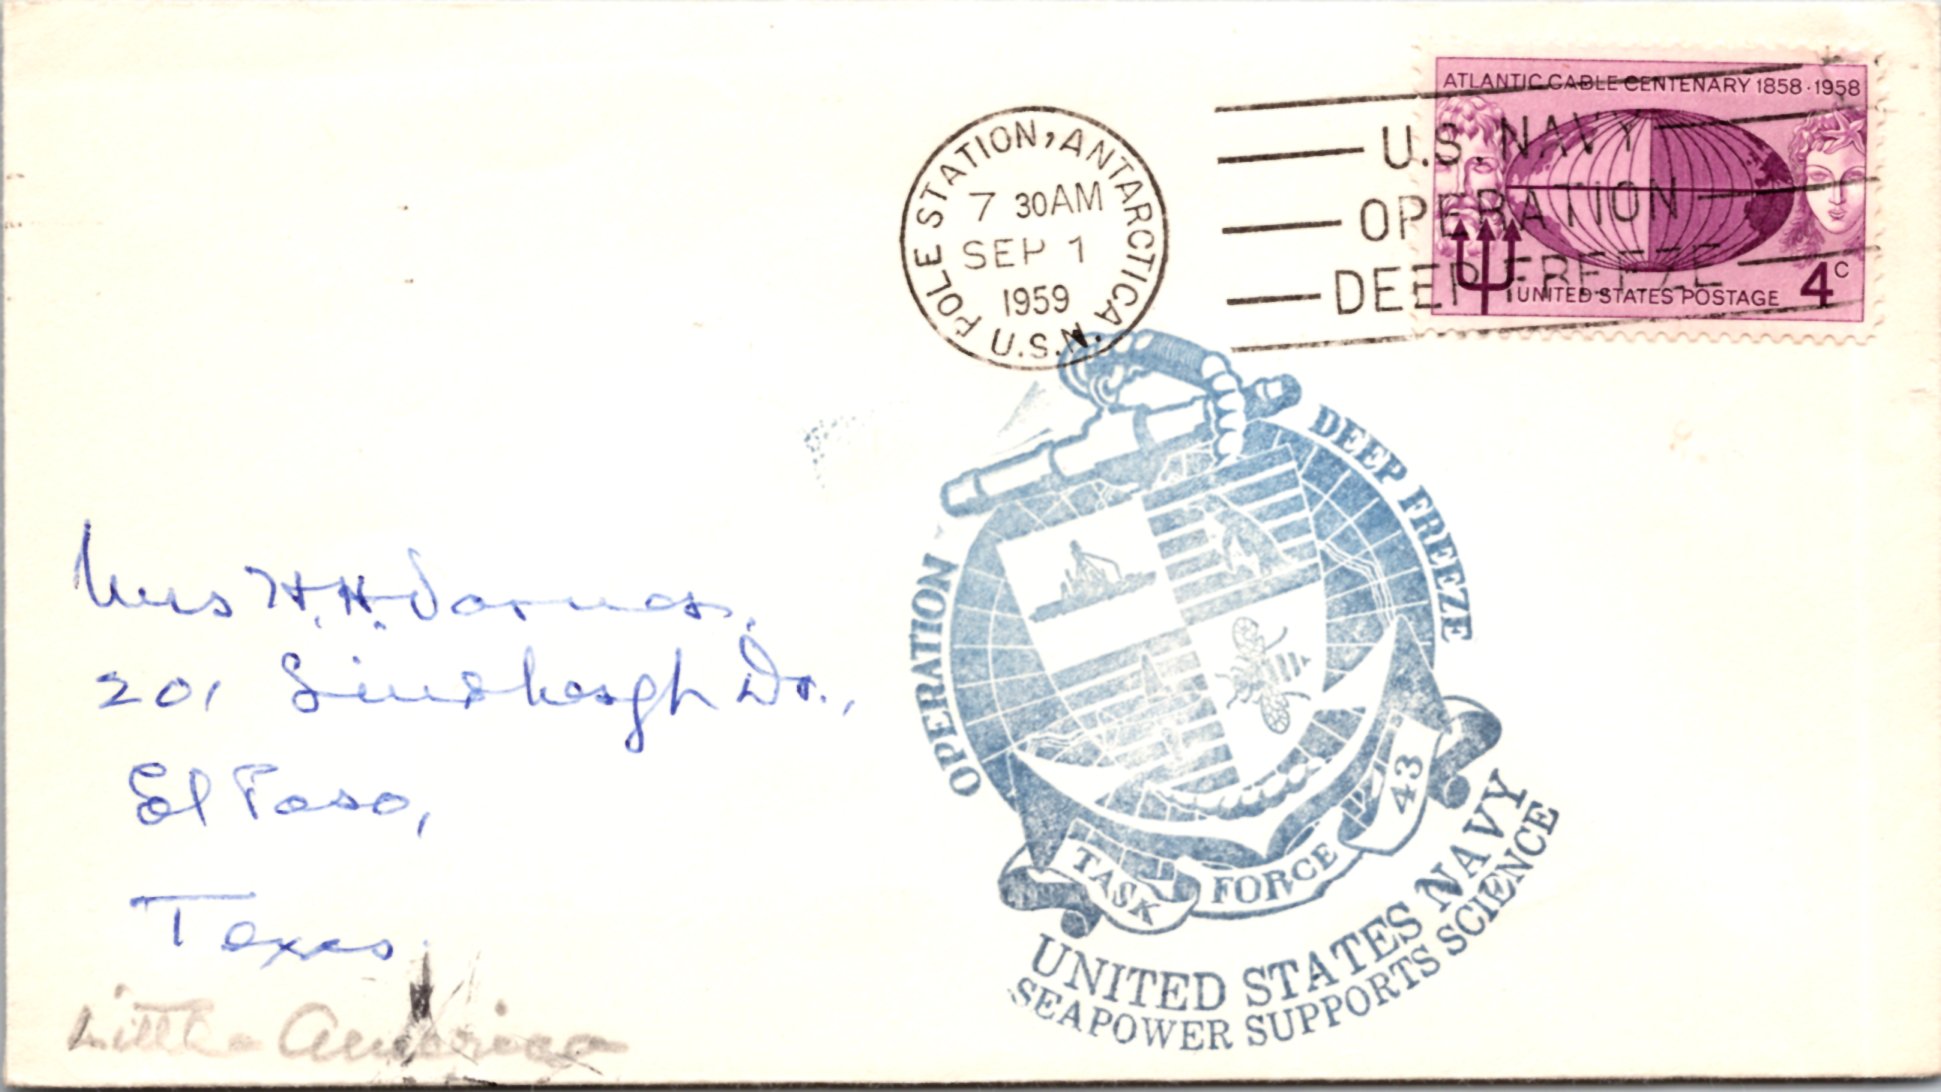 ATLANTIC CABLE CENTENARY 1858 · 1958
UNITED STATES POSTAGE 4c
POLE STATION, ANTARCTICA U.S.N.
7 30AM
SEP 1
1959
U.S. NAVY
OPERATION
DEEP FREEZE
OPERATION DEEP FREEZE
TASK FORCE 43
UNITED STATES NAVY
SEAPOWER SUPPORTS SCIENCE
Mrs H. H.
201 Dr.,
El Paso,
Texas
Little America